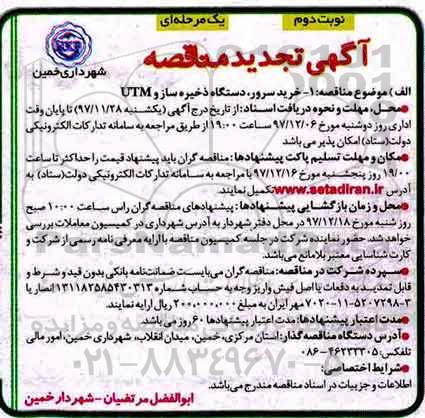 نوبت دوم
یک مرحله‌ای
آگهی تجدید مناقصه
شهرداری خمین
الف) موضوع مناقصه: ۱- خرید سرور، دستگاه ذخیره ساز و UTM
●محل، مهلت و نحوه دریافت اسناد: از تاریخ درج آگهی (یکشنبه ۹۷/۱۱/۲۸) تا پایان وقت
اداری روز دوشنبه مورخ ۹۷/۱۲/۰۶ ساعت ۱۹:۰۰ از طریق مراجعه به سامانه تدارکات الکترونیکی
دولت(ستاد) امکان پذیر می باشد
●مکان و مهلت تسلیم پاکت پیشنهادها: مناقصه گران باید پیشنهاد قیمت را حداکثر تا ساعت
۱۹/۰۰ روز پنجشنبه مورخ ۹۷/۱۲/۱۶ با مراجعه به سامانه تدارکات الکترونیکی دولت(ستاد) به
آدرس www.setadiran.ir تکمیل نمایند.
●محل و زمان بازگشایی پیشنهادها: پیشنهادهای مناقصه گران راس ساعت ۱۰:۰۰ صبح
روز شنبه مورخ ۹۷/۱۲/۱۸ در محل دفتر شهردار به آدرس شهرداری در کمیسیون معاملات بررسی
خواهد شد. حضور نماینده شرکت در جلسه کمیسیون مناقصه با ارایه معرفی نامه رسمی از شرکت و
کارت شناسایی معتبر بلامانع می باشد.
●سپرده شرکت در مناقصه: مناقصه گران می‌بایست ضمانت‌نامه بانکی بدون قید و شرط و
قابل تمدید به دفعات یا اصل فیش واریز وجه به حساب شماره ۱۳۱۱۸۲۵۸۵۴۳۰۳۱۳ انصار یا
۷۰۲۰-۱۱-۵۲۰۷۲۹۸-۳ مهر ایران به مبلغ ۲۰۰,۰۰۰,۰۰۰ ریال ارایه نمایند.
●مدت اعتبار پیشنهادها: مدت اعتبار پیشنهادها ۶۰ روز می باشد.
●آدرس دستگاه مناقصه گذار: استان مرکزی، خمین، میدان انقلاب، شهرداری خمین، امور مالی
تلفکس: ۴۶۲۲۳۳۰۵-۰۸۶
●شرایط اختصاصی:
اطلاعات و جزییات در اسناد مناقصه مندرج می‌باشد.
ابوالفضل مرتضیان - شهردار خمین
۰۲۱-۸۸۳۴۹۶۷۰